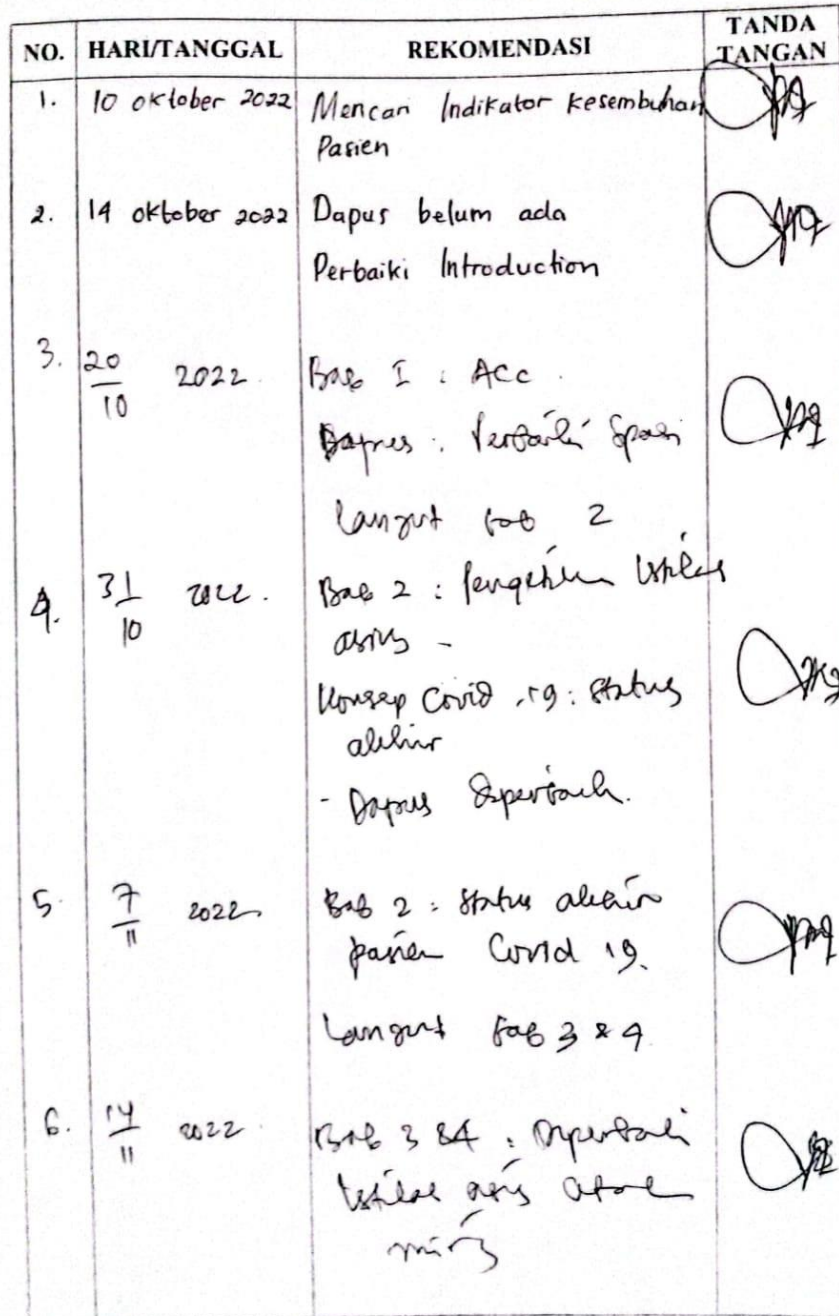 NO. HARI/TANGGAL REKOMENDASI TANDA TANGAN
1. 10 oktober 2022 Mencari Indikator kesembuhan
Pasien
2. 14 oktober 2022 Dapus belum ada
Perbaiki Introduction
3. 20/10 2022. Bab I : ACC.
Dapus : Perbaiki Spasi
Lanjut bab 2
4. 31/10 2022. Bab 2 : istilah
asing -
Konsep Covid -19 : Status
akhir
- Dapus diperbaiki.
5. 7/11 2022 Bab 2 : Status akhir
pasien Covid 19.
Lanjut bab 3 & 4
6. 14/11 2022 Bab 3 & 4 : Diperbaiki
istilah asing cetak
miring